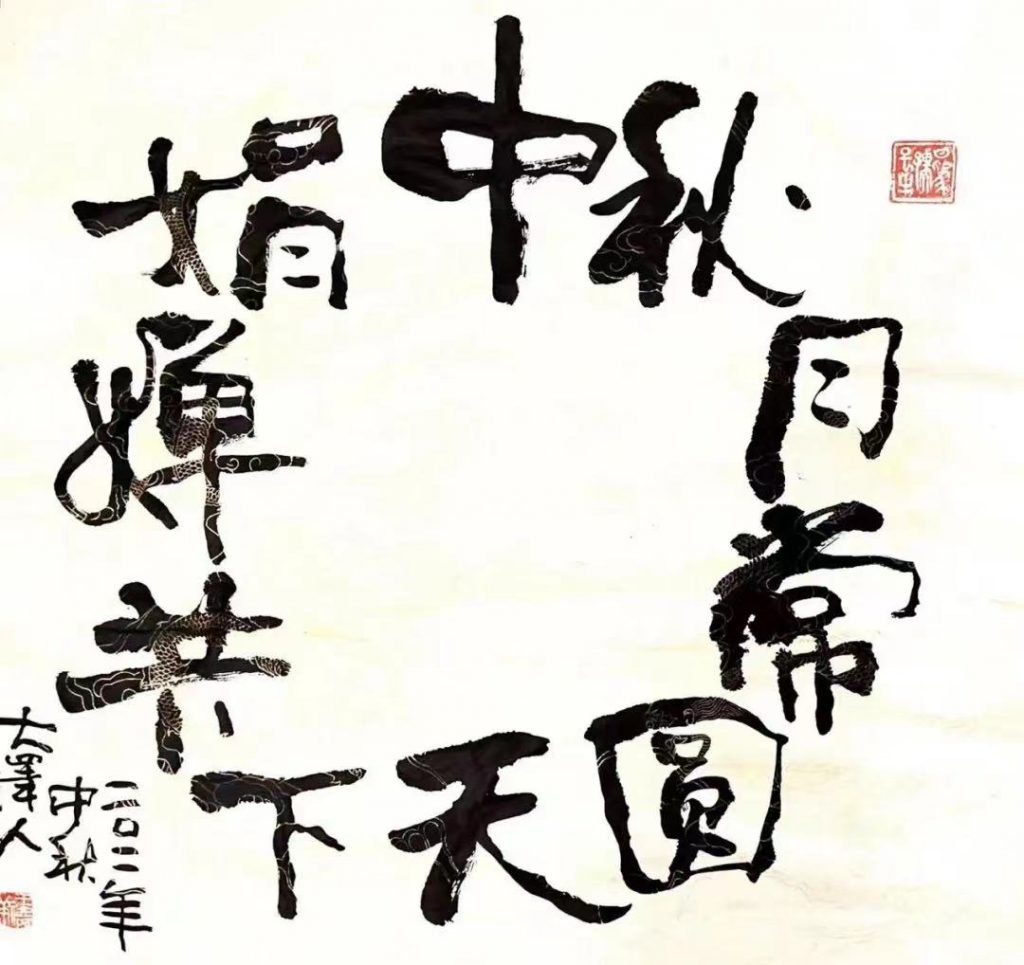 中秋月常圓
天下共婵娟
二〇二二年
中秋
大澤人